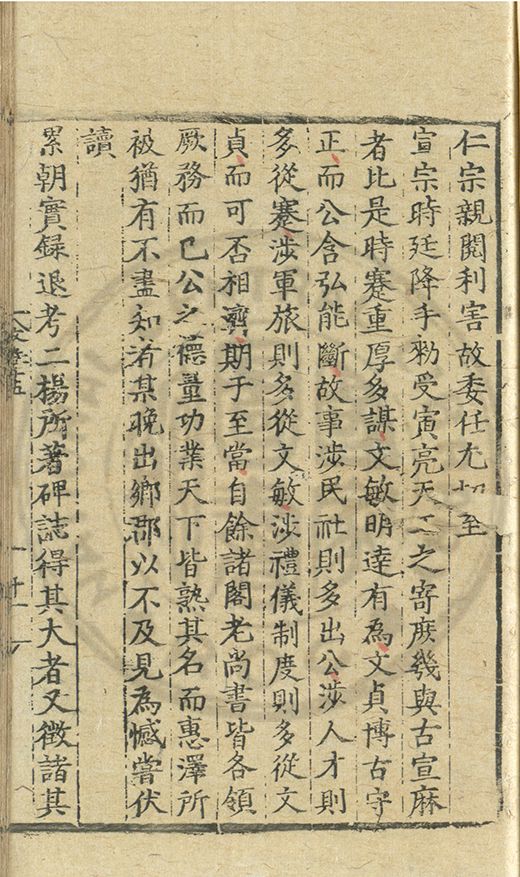 仁宗親閱利害故委任尤切至
宣宗時廷降手勑受寅亮天工之寄庶幾與古宣麻
者比是時蹇重厚多謀文敏明達有為文貞博古守
正而公含弘能斷故事涉民社則多出公涉人才則
多從蹇涉軍旅則多從文敏涉禮儀制度則多從文
貞而可否相濟期于至當自餘諸閣老尚書皆各領
厥務而已公之德量功業天下皆熟其名而惠澤所
被猶有不盡知者某晚出鄉郡以不及見為憾嘗伏
讀
累朝實録退考二楊所著碑誌得其大者又徵諸其